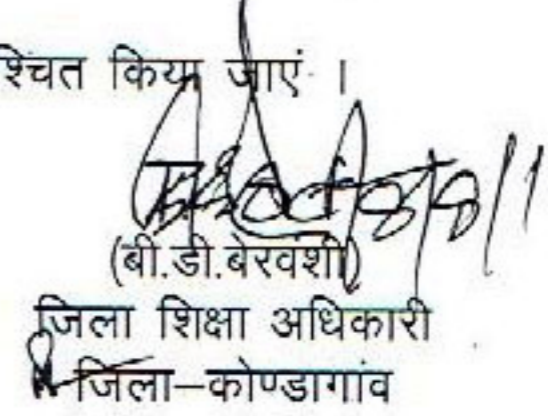 श्चित किया जाएं ।
(बी.डी.बेरवंशी)
जिला शिक्षा अधिकारी
जिला–कोण्डागांव